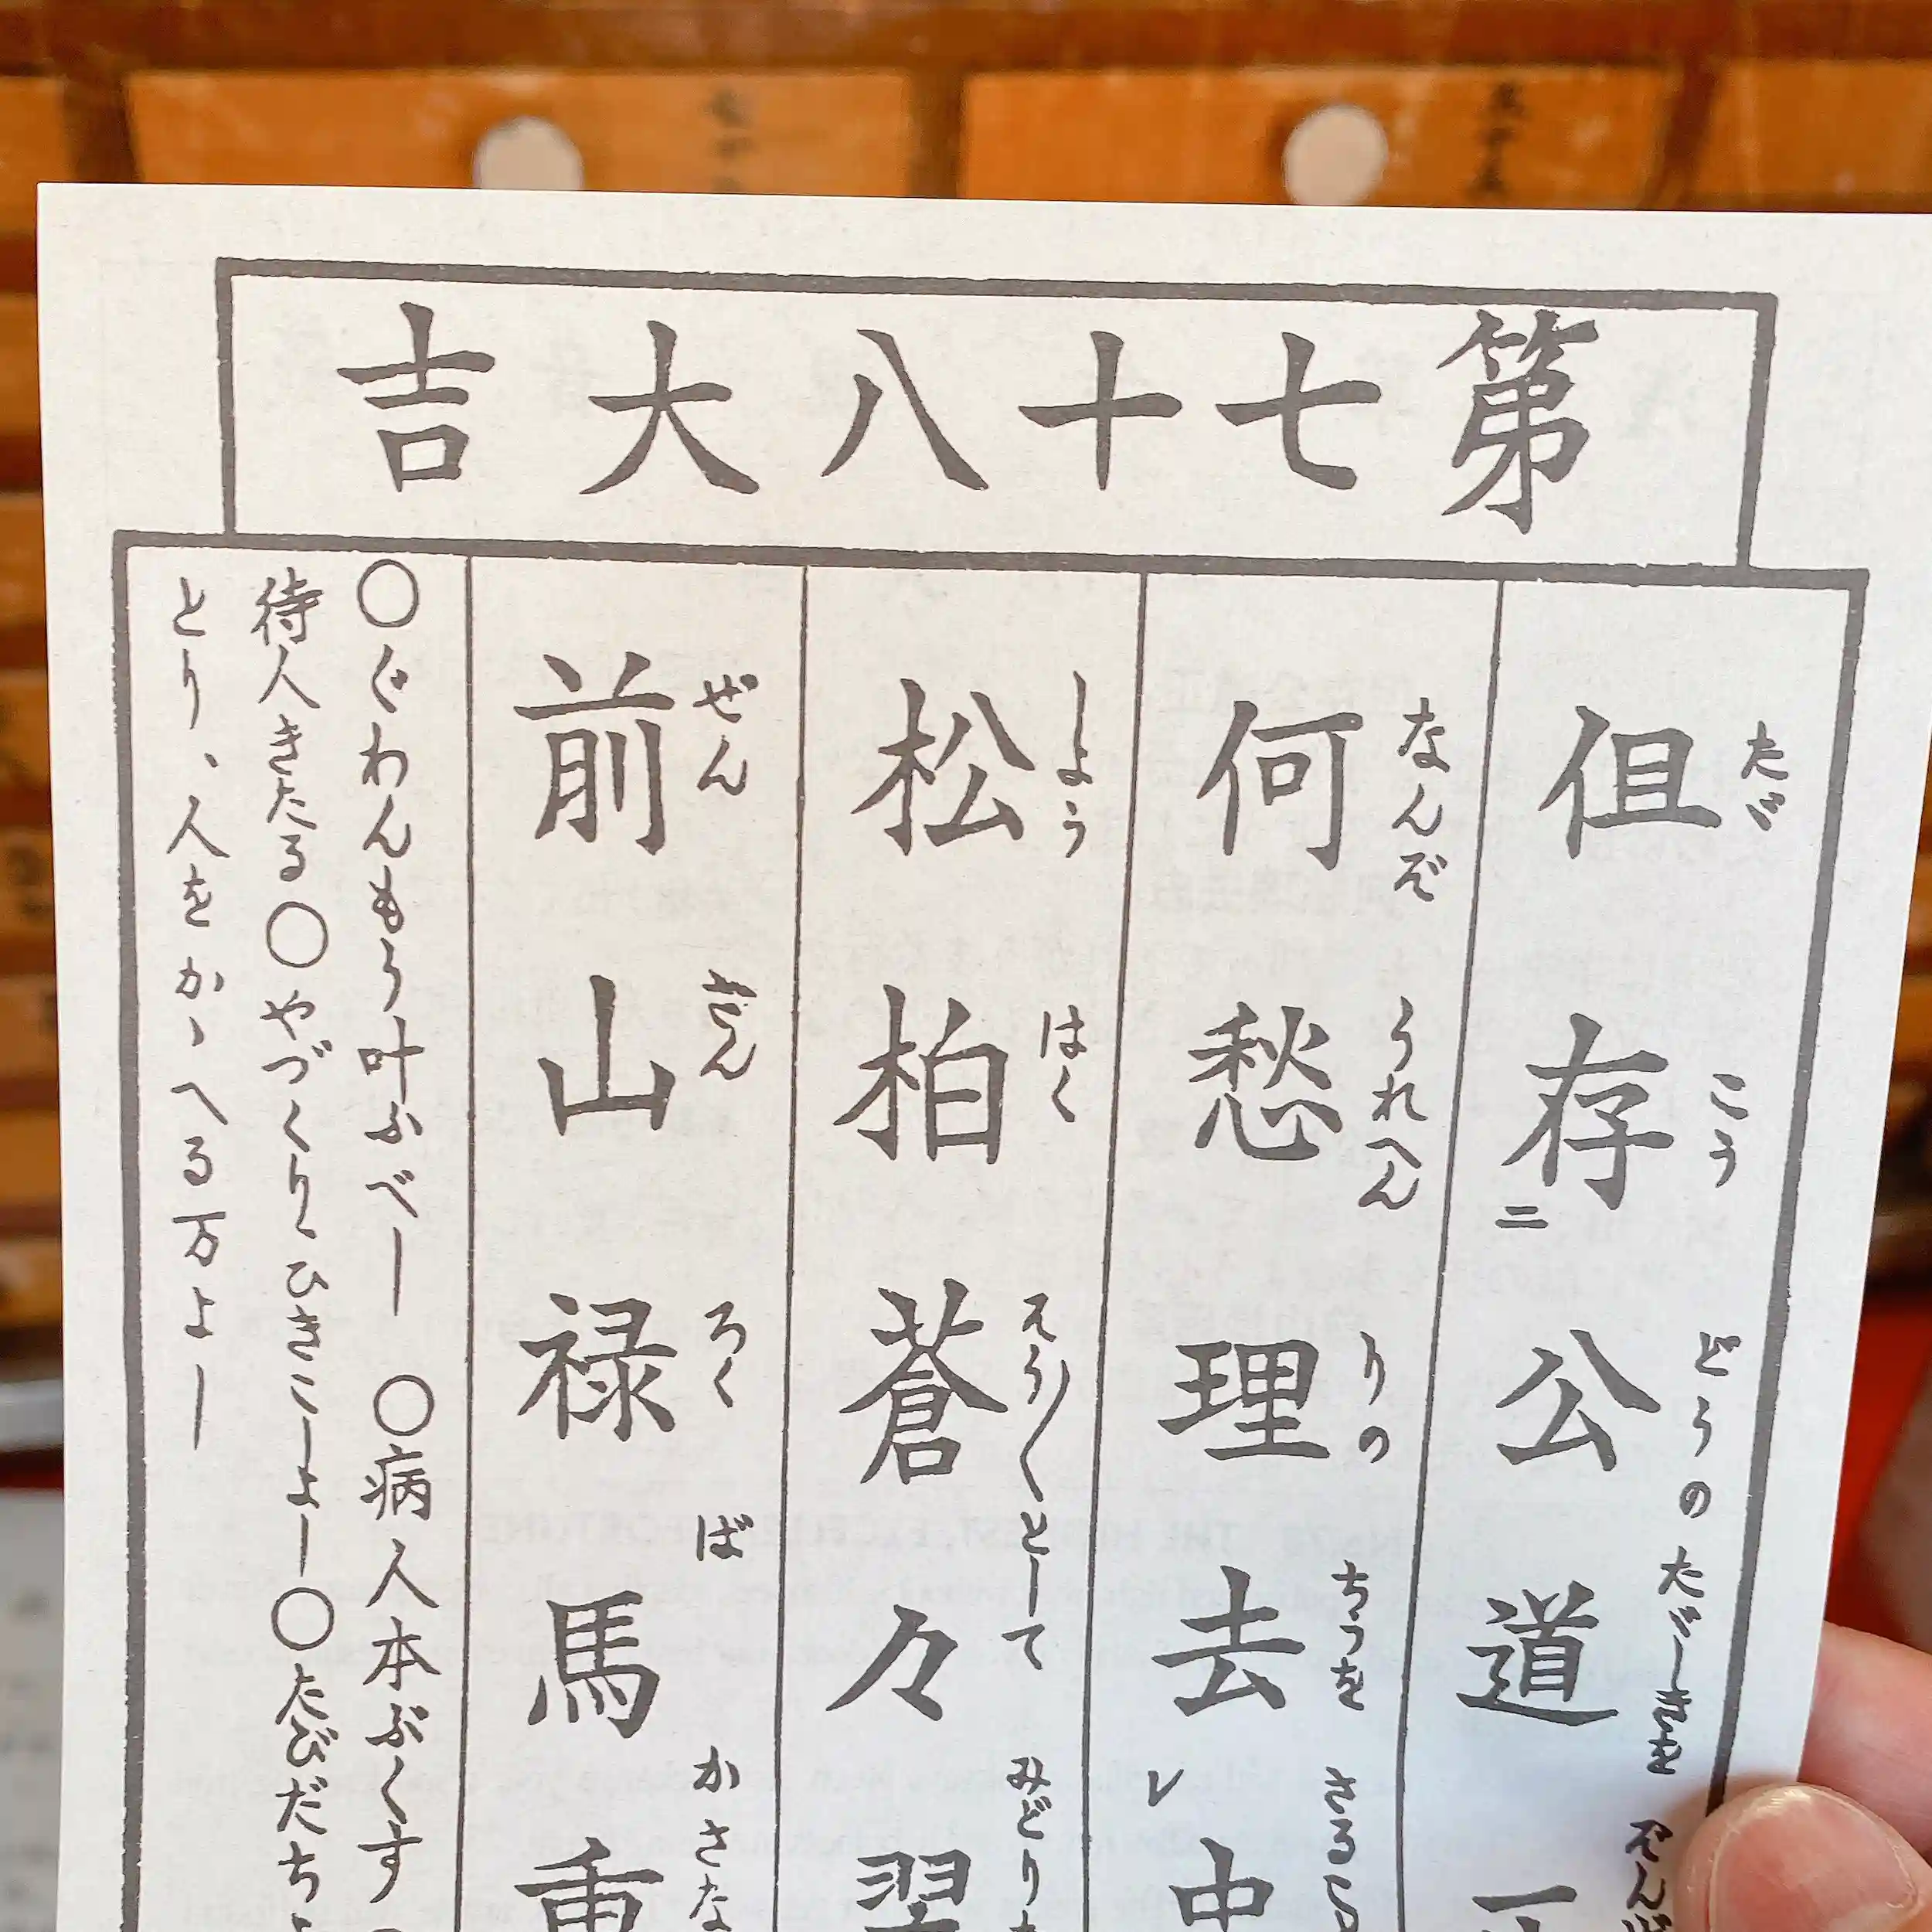 第七十八大吉
たゞ こう どうの たゞしきを
但存二公道
なんぞ うれへん りの ちうを さること
何愁理去レ中
しよう はく として みどり
松柏蒼々翠
ぜん ざん ろく ば かさな
前山禄馬重
○ぐわんもう叶ふべし ○病人本ぶくす
待人きたる○やづくり、ひきこしよし○たびだち
とり、人をかゝへる万よし